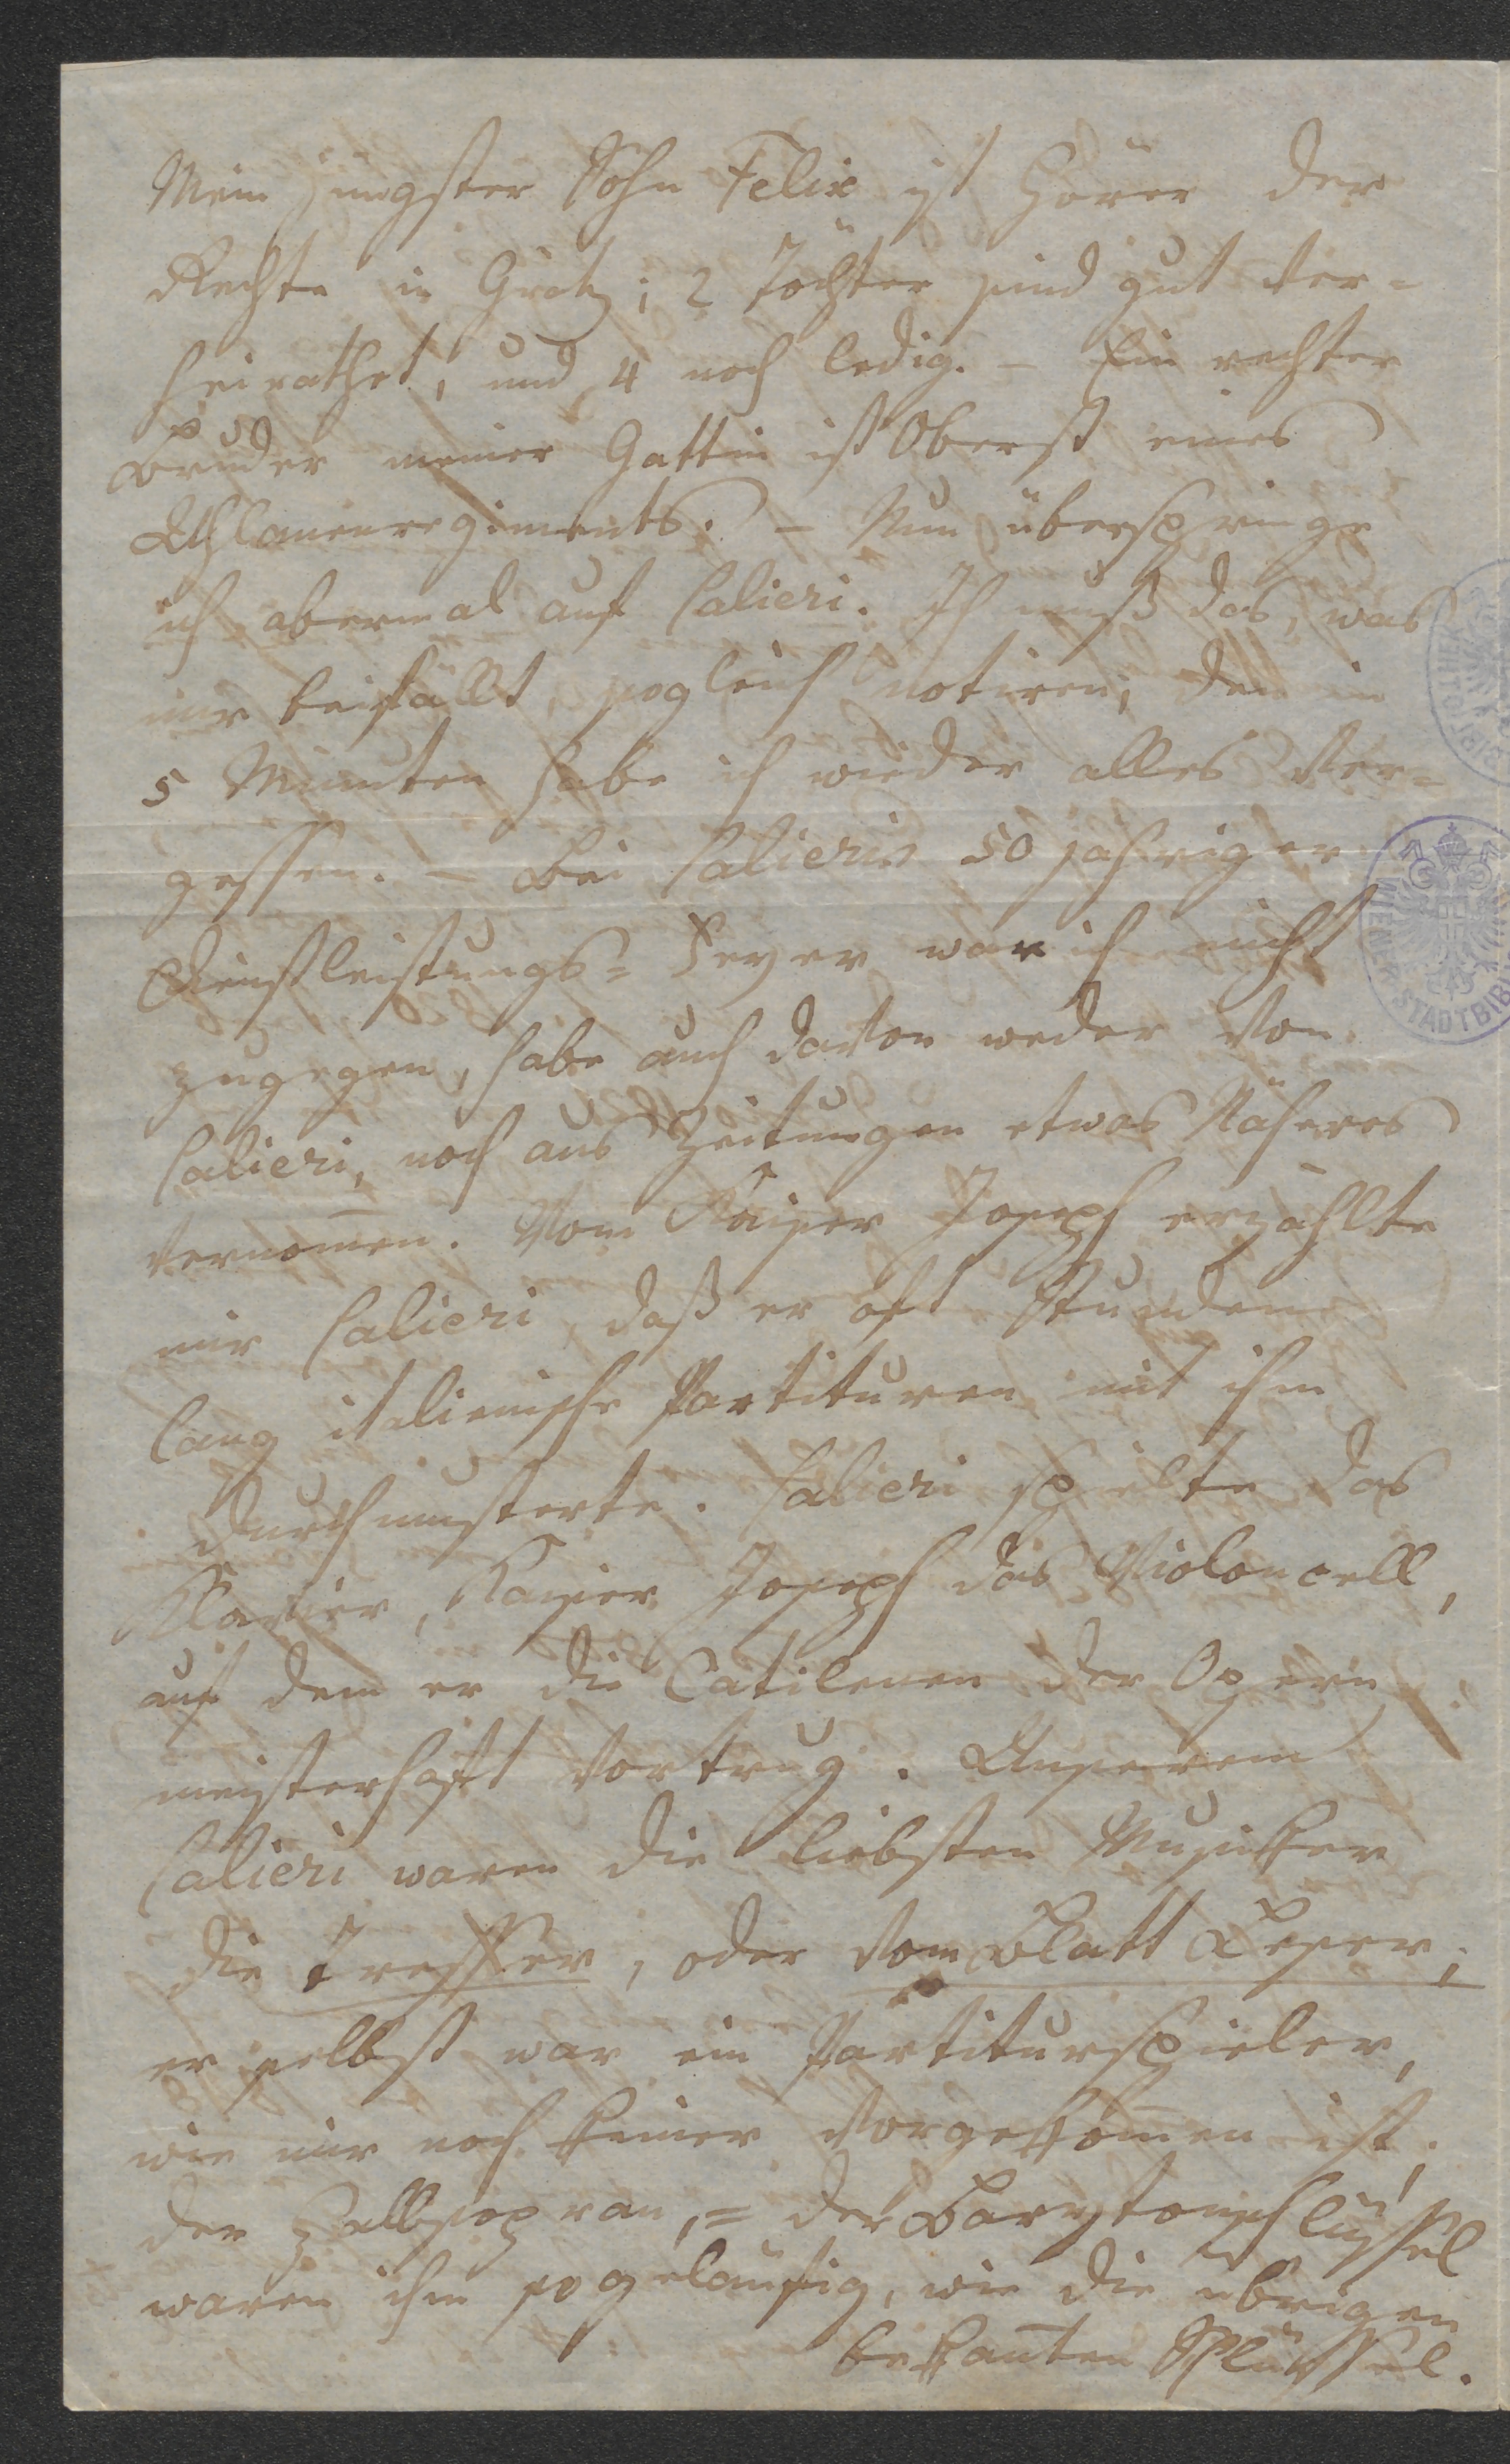 Mein jüngster Sohn Felix ist Hörer der
Rechte in Gratz; 2 Töchter sind gut ver-
heirathet, und 4 noch ledig. – Ein rechter
Bruder meiner Gattin ist Oberst eines
Uhlanenregiments. – Nun überspringe
ich abermal auf Salieri. Ich muß das, was
mir beifällt, sogleich notiren, den in
5 Minuten habe ich wieder alles ver-
gessen. – Bei Salieris 50 jähriger
Dienstleistungs= Feyer war ich nicht
zugegen, habe auch davon weder von
Salieri, noch aus Zeitungen etwas Näheres
vernom̅en. Vom Kaiser Joseph erzählte
mir Salieri, daß er oft Stunden
lang italienische Partituren mit ihm
durchmusterte. Salieri spielte das
Klavier, Kaiser Joseph das Violoncell,
auf dem er die Catilenen der Opern
meisterhaft vortrug. Unserem
Salieri waren die liebsten Musiker
die Treffer, oder vom Blatt Leser;
er selbst war ein Partiturspieler,
wie mir noch keiner vorgekom̅en ist;
der Halbsopran,= der Barytonschlüssel
waren ihm so geläufig, wie die übrigen
bekan̅ten Schlüssel.
WIENER STADTBIB